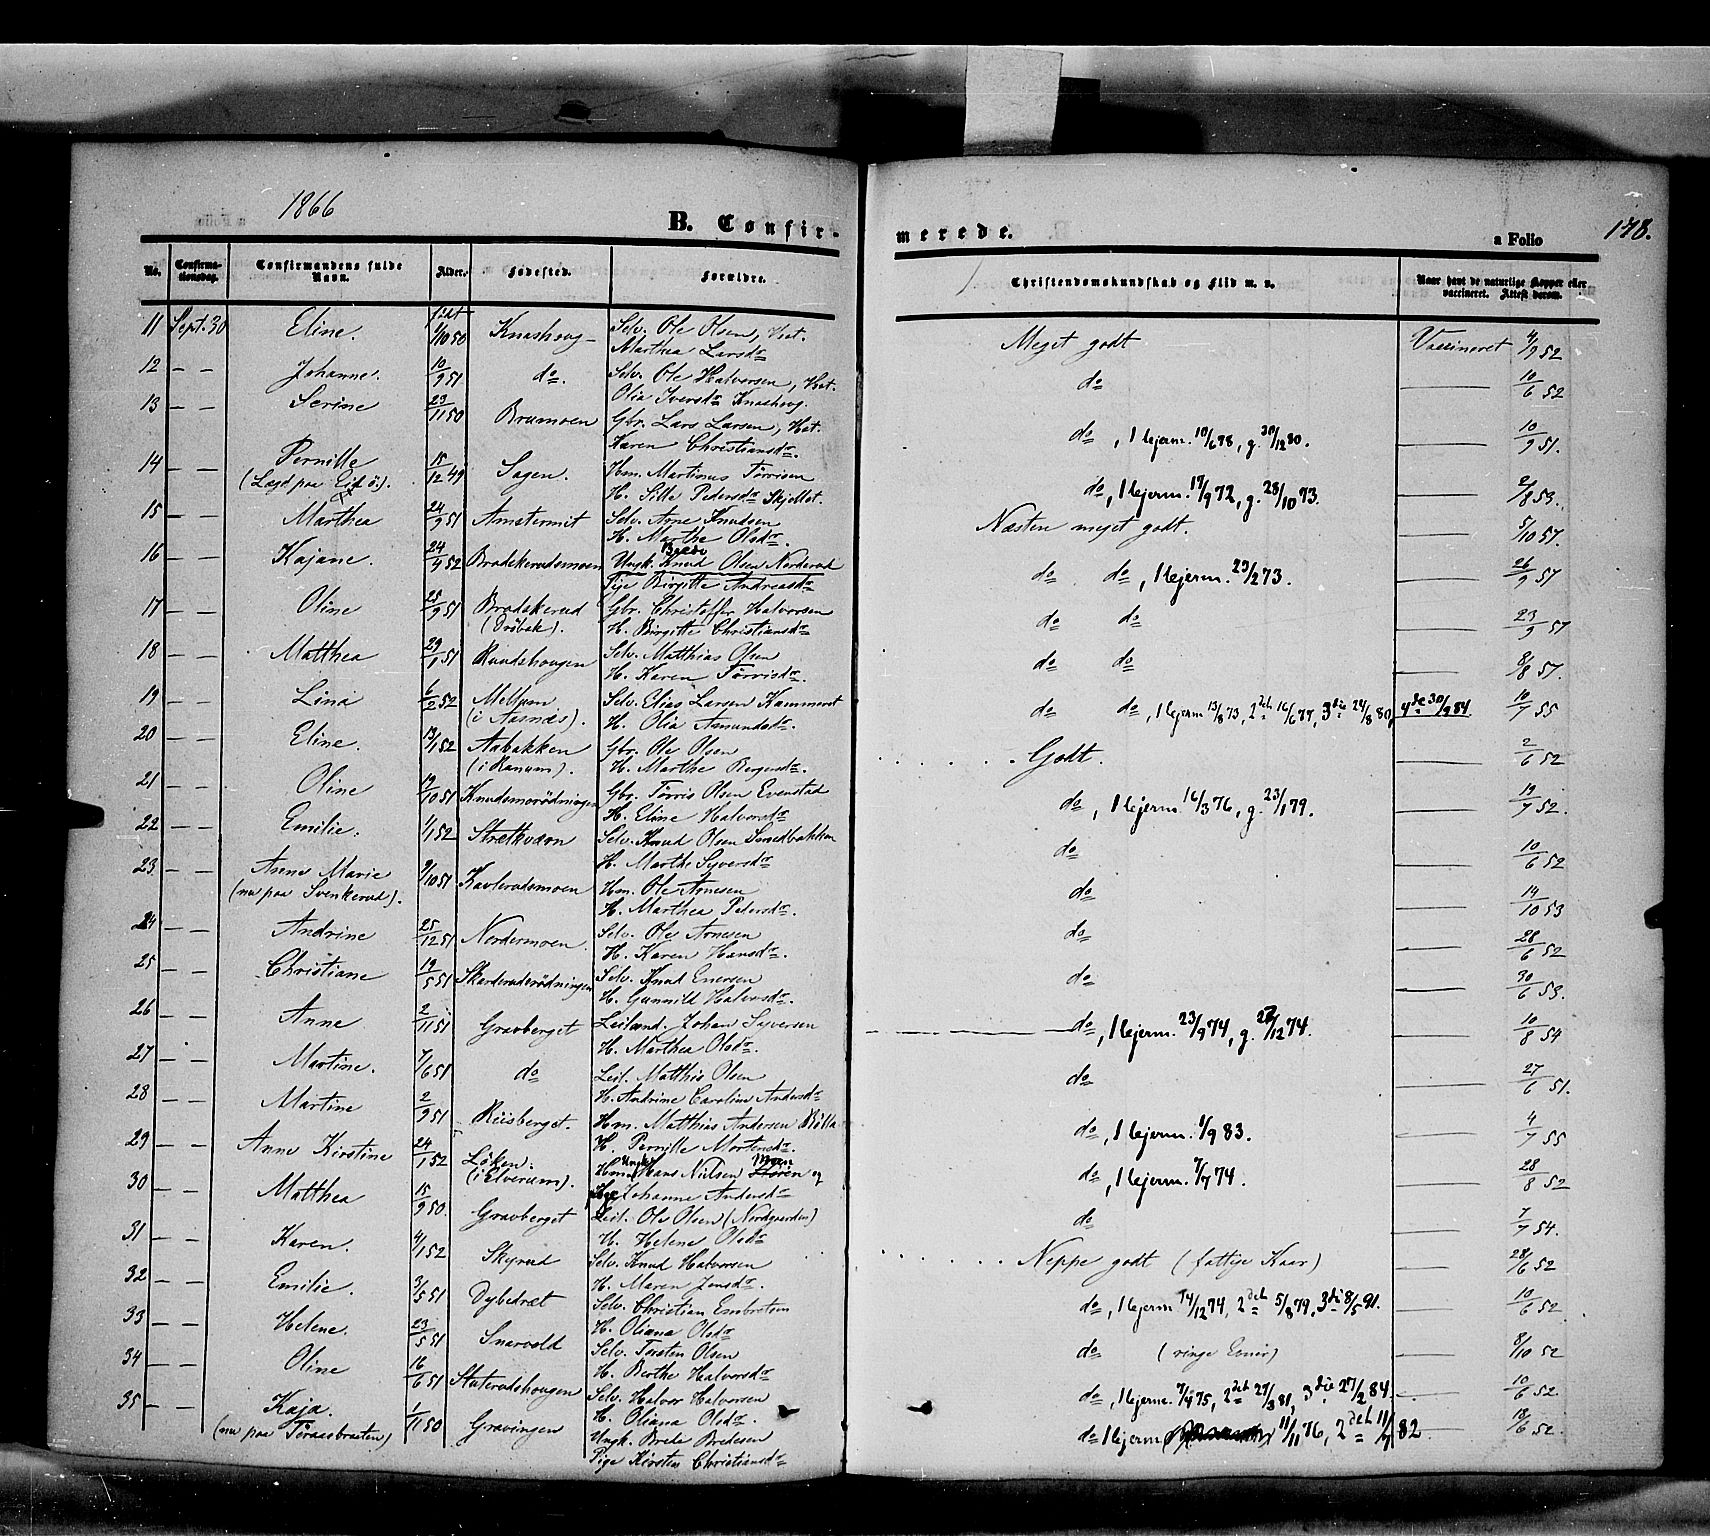 1866
B. Confir-
merede.
a Folio
178.
No.
Confirma-tionsdag.
Confirmandens fulde Navn.
Alder.
Fødested.
Forældre.
Christendomskundskab og Flid m. v.
Naar havt de naturlige Kopper eller vaccineret. Attest derom.
11 Sept. 30 Eline. født 1/10 50 Knashoug Selv. Ole Olsen, Hst. Meget godt Vaccineret 4/9 52
Marthea Larsdr
12 — — Johanne. 10/9 51 do. Selv. Ole Halvorsen, Hst. do — 10/6 52
Olia Iversdr Knashoug.
13 — — Serine 23/11 50 Brumoen Gbr. Lars Larsen, Hst. do, 1 lejerm. 10/6 78, g. 30/12 80. — 10/9 51.
Karen Christiansdr.
14 — — Pernille 15/12 49 Sagen. Hm. Martinus Tørrisen do, 1 lejerm. 17/9 72, g. 28/10 73. — 2/8 53.
(Lagd paa Eid ø.) H. Sille Pedersdr Skjellet.
15 — — Marthea 24/9 51 Amstermit Selv. Arne Knudsen Næsten meget godt. — 5/10 57.
H. Marthe Olsdr.
16 — — Kajane. 24/4 52 Bradskerudsmoen Ungk. Knud Olsen Norderud do do, 1 lejerm. 23/2 73. — 26/9 57
Pige Birgitte Andreasdr
17 — — Oline 25/9 51 Bradskerud Gbr. Christoffer Halvorsen do do — 23/9 57
(Drøbak). H. Birgitte Christiansdr
18 — — Matthea 29/1 51 Ruudshougen Selv. Matthias Olsen do do — 8/8 57.
H. Karen Tørrisdr.
19 — — Lina 6/2 52 Mellum Selv. Elias Larsen Kammeret do do, 1 lejerm 13/8 73, 2det 16/6 77, 3die 24/8 80, 4de 30/9 84 10/7 55
(i Aasnæs). H. Olia Amundsdr.
20 — — Eline. 13/1 52 Aabakken Gbr. Ole Olsen Godt. — 2/6 52
(i Ranum). H. Marthe Bergersdr.
21 — — Oline 19/10 51 Knudsmorødningen Gbr. Tørris Olsen Evenstad do, 1 lejerm. 16/3 76, g. 23/1 79. — 19/7 52.
H. Eline Halvorsdr
22 — — Emilie. 1/1 52 Strætkværn Selv. Knud Olsen Smedbakken do — 10/6 52
H. Marthe Syversdr
23 — — Anne Marie 9/10 51 Kavlerudsmoen Hm. Ole Arnesen do — 14/10 53
(nu paa Svenkerud). H. Marthea Pedersdr.
24 — — Andrine 25/12 51 Nordermoen. Selv. Ole Arnesen do — 28/6 52
H. Karen Hansdr.
25 — — Christiane 19/5 51 Skarderudsrødningen Selv. Knud Enersen do — 30/6 53.
H. Gunnild Halvorsdr.
26 — — Anne 2/11 51 Gravberget Leilænd. Johan Syversen do, 1 lejerm. 23/9 74, g. 27/12 74. — 10/8 54
H. Marthea Olsdr.
27 — — Martine. 7/6 51 do Leil. Matthis Olsen do — 27/6 51.
H. Andrine Caroline Andersdr
28 — — Martine 2/9 51 Riisberget. Hm. Matthias Andersen Bølla do, 1 lejerm. 1/9 83. — 4/7 55
H. Pernille Mortensdr.
29 — — Anne Kirstine 24/1 52 Løken. Hans Nilsen Moen og do, 1 lejerm. 7/7 74. — 28/8 52
(i Elverum). Pige Johanne Andersdr
30 — — Matthea 15/9 50. Gravberget Leil. Ole Olsen (Nordgaarden) do — 7/7 54.
H. Helene Olsdr
31 — — Karen. 4/1 52 Skyrud Selv. Knud Halvorsen Neppe godt (fattige Kaar) — 28/6 52
H. Maren Jensdr.
32 — — Emilie. 3/5 51 Dybedræt Selv. Christian Embretsen do, 1 lejerm 14/12 74, 2det 5/8 79, 3die 8/5 91. — 10/6 52
H. Oliana Olsdr
33 — — Helene. 23/5 51 Snarveld Selv. Torsten Olsen do (ringe Evner) — 8/10 52
H. Berthe Halvorsdr
34 — — Oline 16/6 51 Staterudshougen Selv. Halvor Halvorsen do, 1 lejerm. 7/4 75, 2det 27/3 81, 3die 27/2 84. — 10/6 52.
H. Oliana Olsdr.
35 — — Kaja. 1/11 50 Gravingen Ungk. Brede Bredesen do 1 lejerm 11/11 76, 2det 11/7 82 — 18/6 52.
(nu paa Toraasbraaten) Pige Kirsten Christiansdr